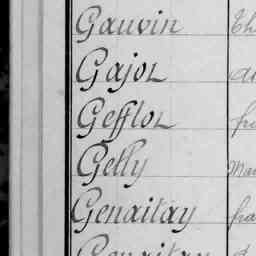 Gauvin Th
Gajol
Gefflol
Gelly Mar
Genaitay fra